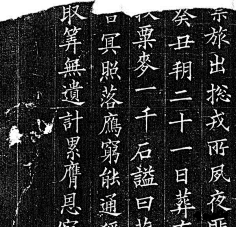 宗旅出揔戎所夙夜匪
癸丑朔二十一日葬
粟麥一千石謚曰
冥照落鷹窮能通
取筭無遺計累膺恩